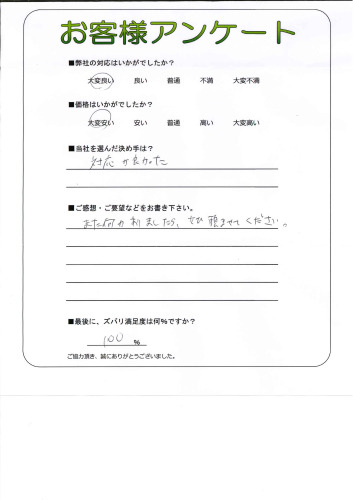 お客様アンケート
■弊社の対応はいかがでしたか？
大変良い 良い 普通 不満 大変不満
■価格はいかがでしたか？
大変安い 安い 普通 高い 大変高い
■当社を選んだ決め手は？
対応が良かった
■ご感想・ご要望などをお書き下さい。
また何か有りましたら、ぜひ頼ませてください。
■最後に、ズバリ満足度は何％ですか？
100 %
ご協力頂き、誠にありがとうございました。